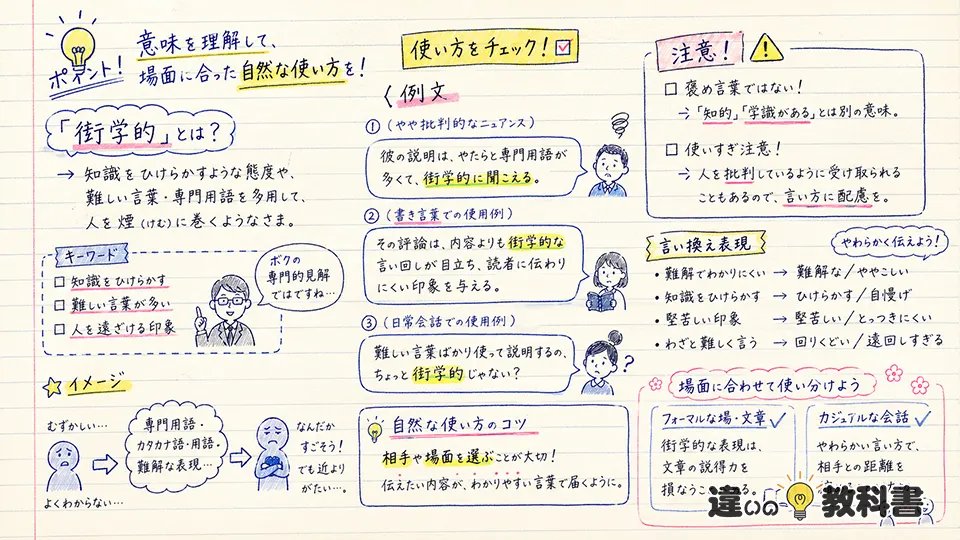 ポイント!
意味を理解して、
場面に合った自然な使い方を!
「街学的」とは?
→ 知識をひけらかすような態度や、
難しい言葉・専門用語を多用して、
人を煙(けむ)に巻くようなさま。
キーワード
□ 知識をひけらかす
□ 難しい言葉が多い
□ 人を遠ざける印象
ボクの
専門的見解
ではですね…
イメージ
むずかしい…
よくわからない…
専門用語・
カタカナ語・用語・
難解な表現…
なんだか
すごそう!
でも近より
がたい…。
使い方をチェック!
例文
① (やや批判的なニュアンス)
彼の説明は、やたらと専門用語が
多くて、街学的に聞こえる。
② (書き言葉での使用例)
その評論は、内容よりも街学的な
言い回しが目立ち、読者に伝わり
にくい印象を与える。
③ (日常会話での使用例)
難しい言葉ばかり使って説明するの、
ちょっと街学的じゃない?
?
自然な使い方のコツ
相手や場面を選ぶことが大切!
伝えたい内容が、わかりやすい言葉で届くように。
注意!
!
□ 褒め言葉ではない!
→「知的」「学識がある」とは別の意味。
□ 使いすぎ注意!
→ 人を批判しているように受け取られる
こともあるので、言い方に配慮を。
言い換え表現
やわらかく伝えよう!
・難解でわかりにくい → 難解な/ややこしい
・知識をひけらかす → ひけらかす/自慢げ
・堅苦しい印象 → 堅苦しい/とっつきにくい
・わざと難しく言う → 回りくどい/遠回しすぎる
場面に合わせて使い分けよう
フォーマルな場・文章
街学的な表現は、
文章の説得力を
損なうこ
る。
カジュアルな会話
やわらかい言い方で、
相手との距離を
違いの教科書